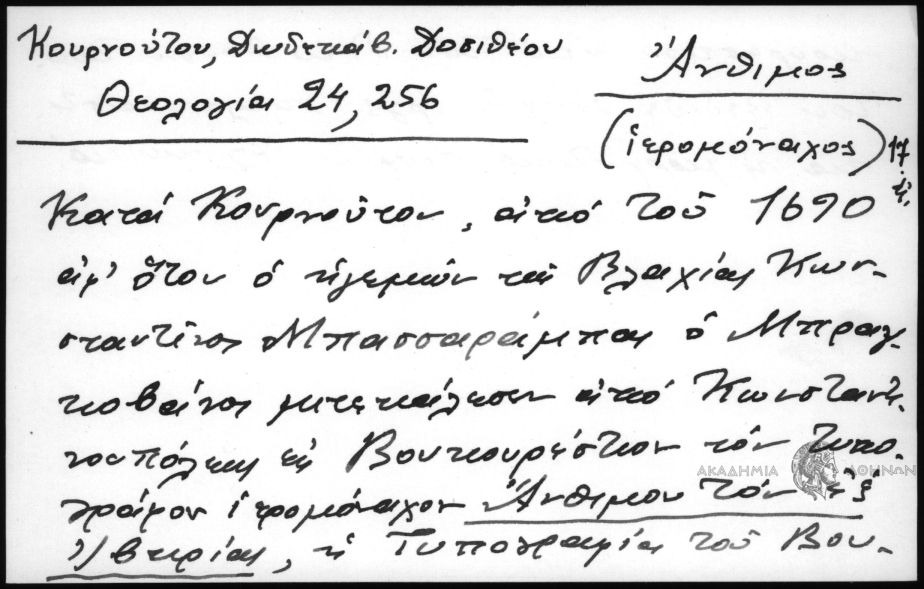 Κουρνούτου, Δωδεκάβ. Δοσιθέου
Θεολογία 24, 256
Ἄνθιμος
(ἱερομόναχος) 17
Κατά Κουρνοῦτον, ἀπό τοῦ 1690
ἀφ' ὅτου ὁ ἡγεμών τῆς Βλαχίας Κων-
σταντῖνος Μπασσαράμπας ὁ Μπραγ-
κοβάνος μετεκάλεσεν ἀπό Κωνσταντι-
νουπόλεως εἰς Βουκουρέστιον τόν τυπο-
γράφον ἱερομόναχον Ἄνθιμον τόν ἐξ
Ἰβηρίας, ἡ Τυπογραφία τοῦ Βου-
ΑΚΑΔΗΜΙΑ ΑΘΗΝΩΝ